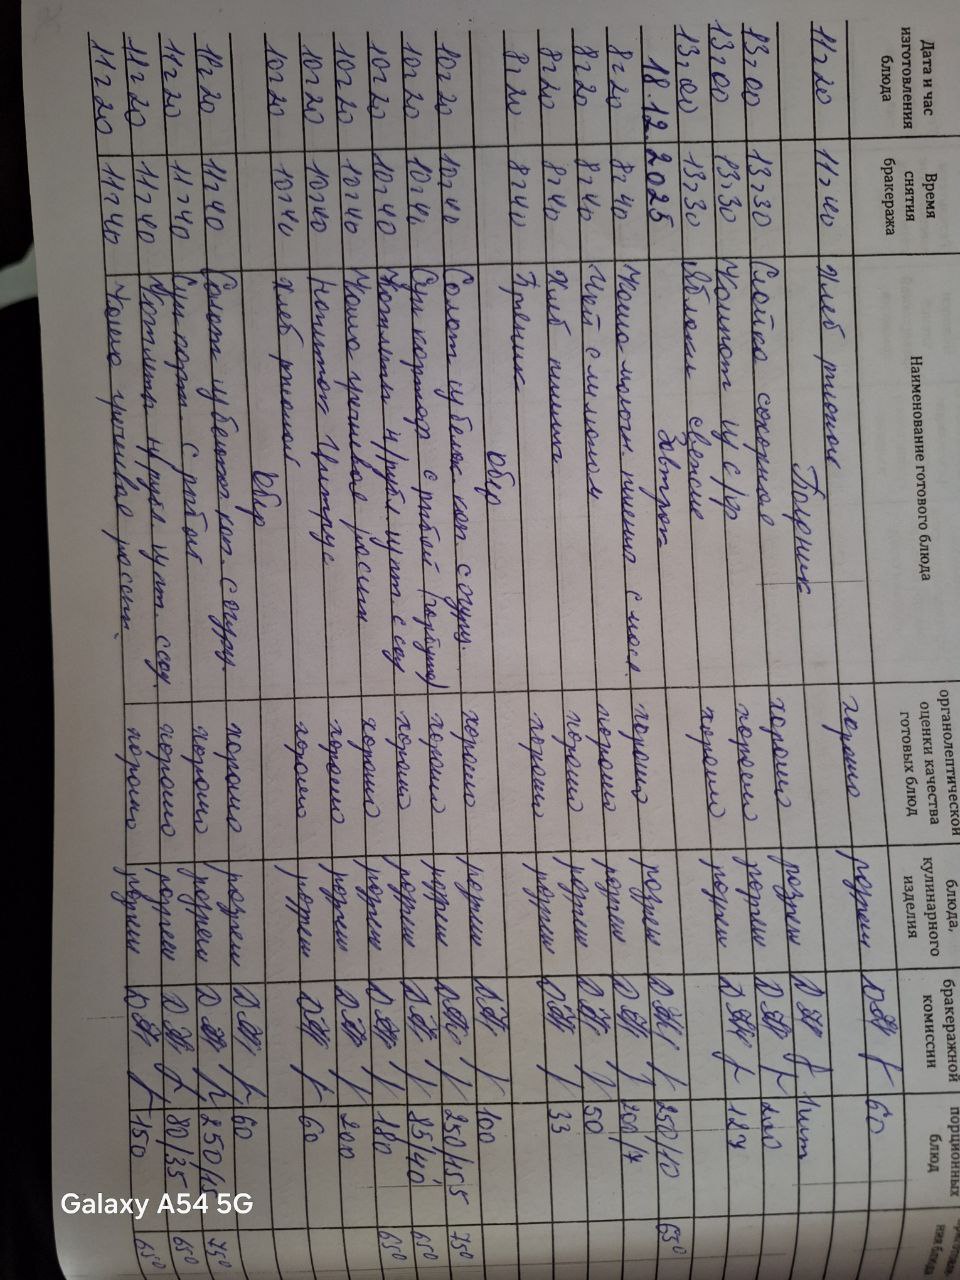 Дата и час изготовления блюда | Время снятия бракеража | Наименование готового блюда | органолептической оценки качества готовых блюд | блюда, кулинарного изделия | бракеражной комиссии | порционных блюд | ния блюда
11ч20 11ч40 Хлеб ржаной хорошо разреш 60
Полдник
13ч00 13ч30 Слойка сахарная хорошо разреш 1 шт
13ч00 13ч30 Компот из с/ф хорошо разреш 200
13ч00 13ч30 Яблоки свежие хорошо разреш 127
18.12.2025 Завтрак
8ч20 8ч40 Каша молочн. пшено с масл хорошо разреш 250/10 65⁰
8ч20 8ч40 Чай с лимоном хорошо разреш 200/7
8ч20 8ч40 Хлеб пшенич хорошо разреш 50
8ч20 8ч40 Пряник хорошо разреш 33
Обед
10ч20 10ч40 Салат из белок. кап. с огурц. хорошо разреш 100
10ч20 10ч40 Суп картоф с рыбой (горбуша) хорошо разреш 250/15 75⁰
10ч20 10ч40 Котлеты н/рубл из пт. с соу хорошо разреш 85/40 65⁰
10ч20 10ч40 Каша гречневая рассып хорошо разреш 180 65⁰
10ч20 10ч40 Напиток Цитрус хорошо разреш 200
10ч20 10ч40 Хлеб ржаной хорошо разреш 60
Обед
11ч20 11ч40 Салат из белокоч кап. с огурц. хорошо разреш 60
11ч20 11ч40 Суп карт с рыбой хорошо разреш 250/15 75⁰
11ч20 11ч40 Котлеты н/рубл из пт. с соу. хорошо разреш 80/35 65⁰
11ч20 11ч40 Каша гречневая рассып. хорошо разреш 150 65⁰
Galaxy A54 5G